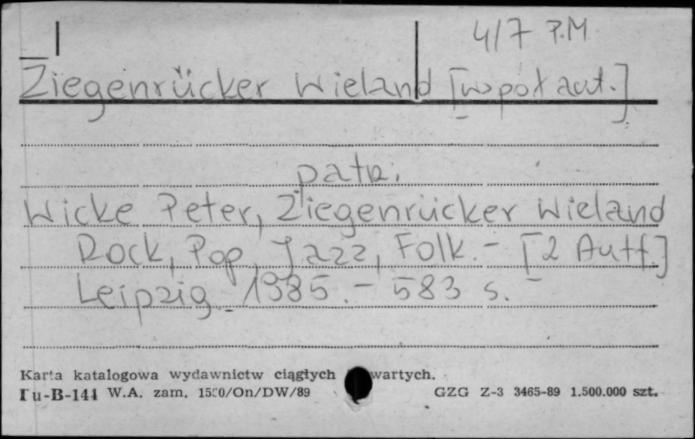 4/7 P.M
Ziegenrücker Wieland [współaut.]
patrz.
Wicke Peter, Ziegenrücker Wieland
Rock, Pop, Jazz, Folk. - [2 Aufl.]
Leipzig 1985. - 583 s.
Karta katalogowa wydawnictw ciągłych wartych.
Pu-B-141 W.A. zam. 1500/On/DW/89 GZG Z-3 3465-89 1.500.000 szt.